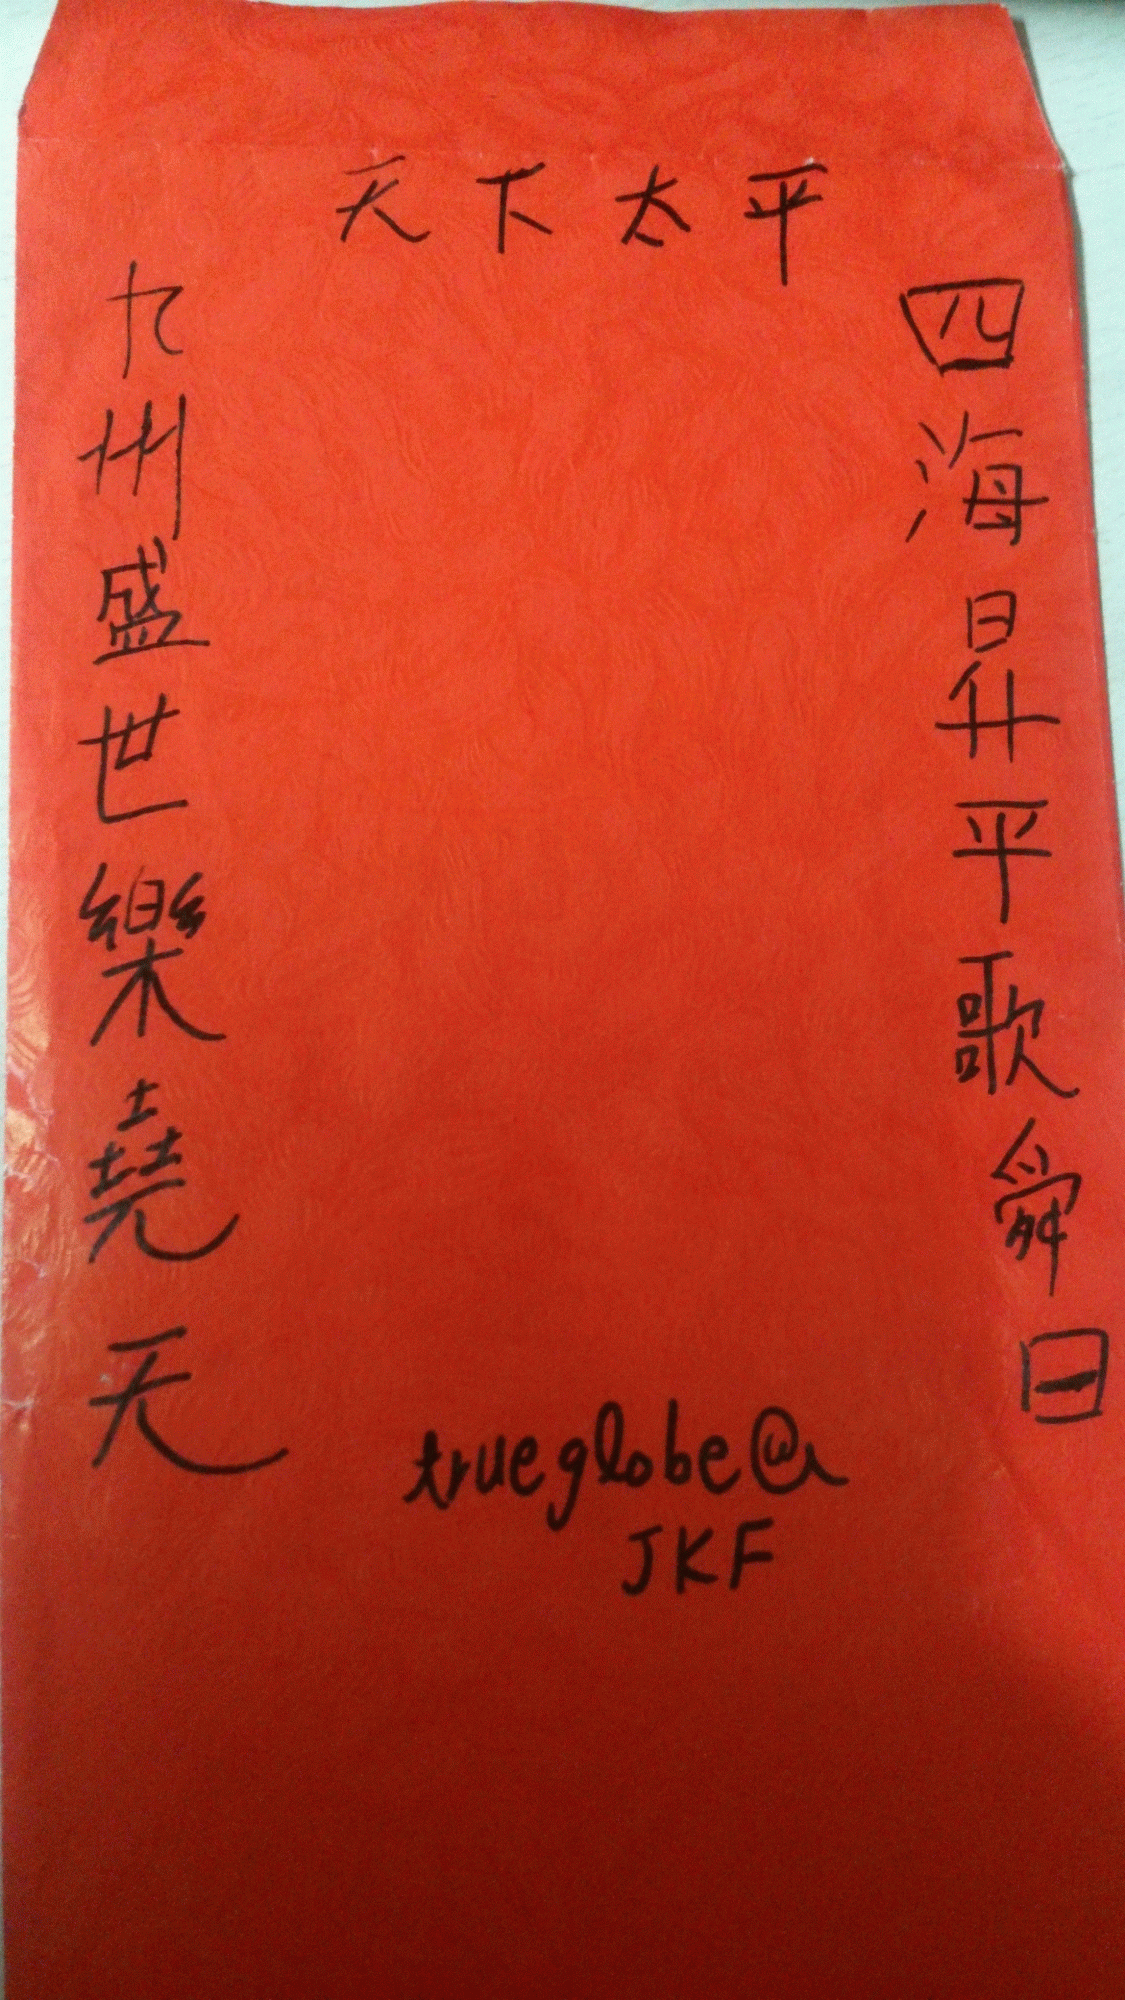 天下太平
四海昇平歌舜日
九州盛世樂堯天
trueglobe@
JKF